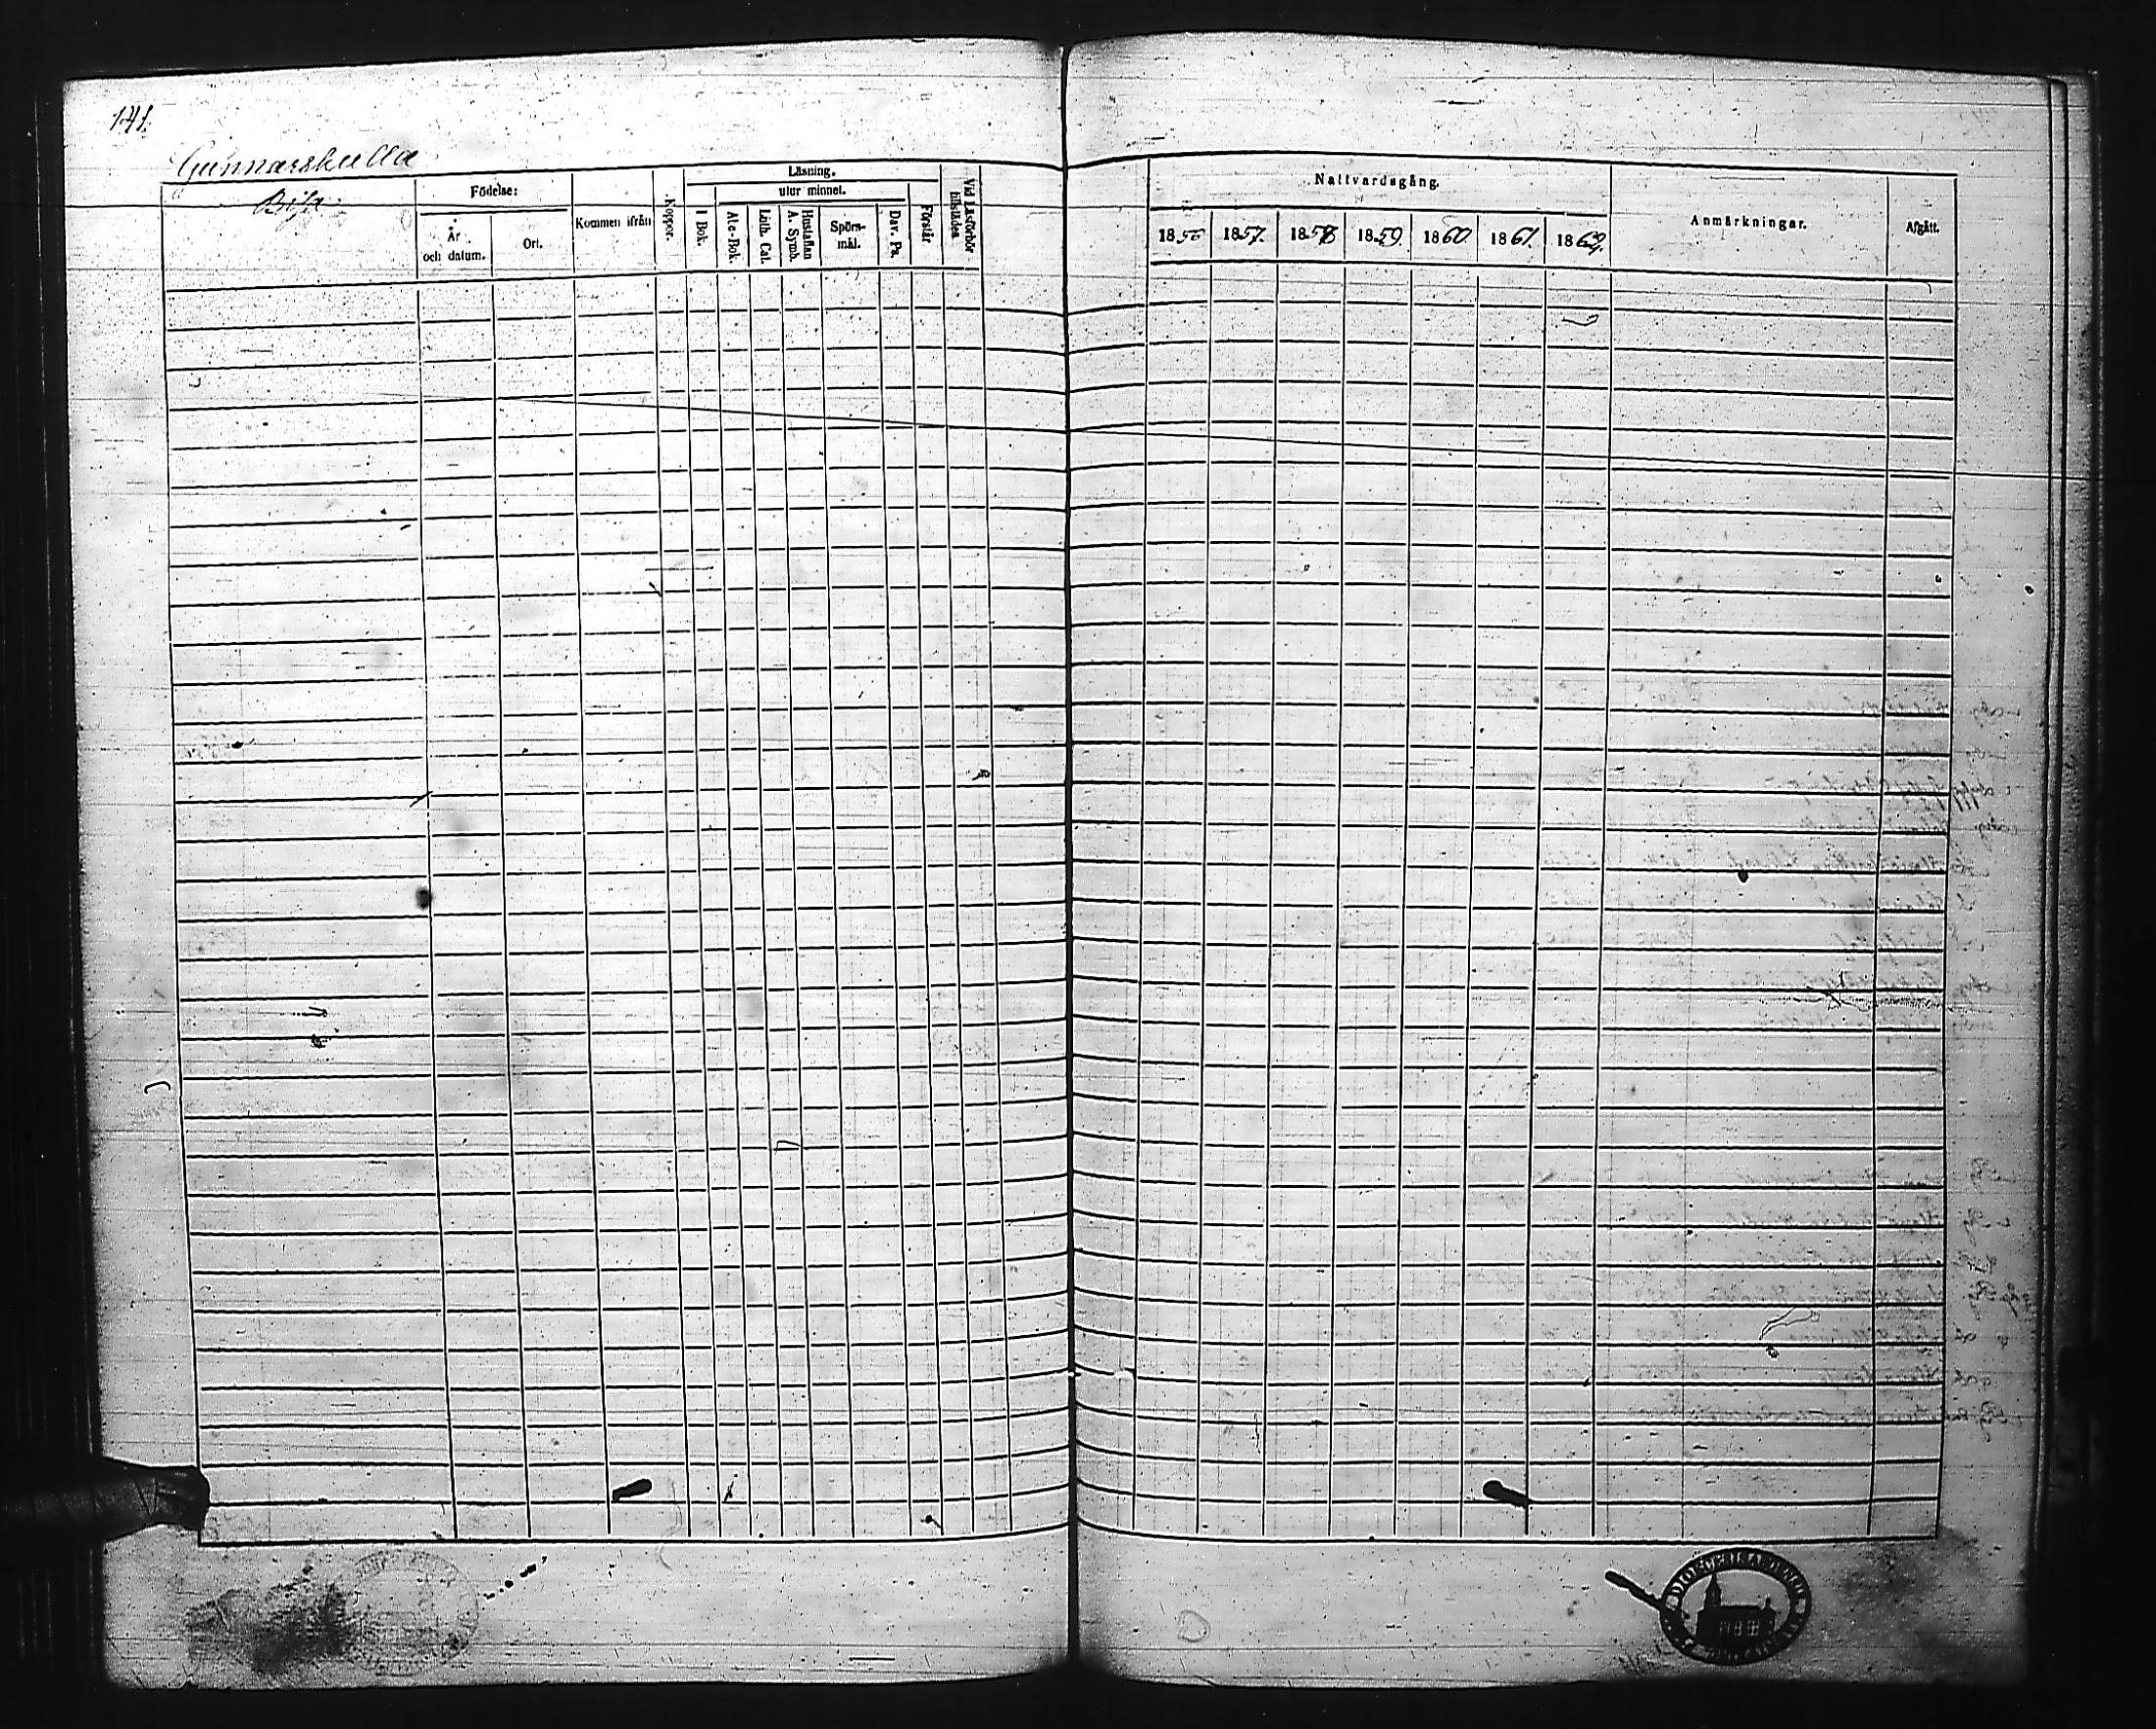 141.
Gunnarskulla
Födelse:
År
och datum.
Ort.
Kommen ifrån
Koppor.
Läsning.
I Bok.
utur minnet.
Abc-Bok
Luth. Cat.
Hustaflan
A. Symb.
Spörs-
mål.
Dav. Ps.
Förstår
Vid Läsförhör
tillstädes
Nattvardsgång.
1856
1857.
1858
1859.
1860.
1861.
1862.
Anmärkningar.
Afgått.